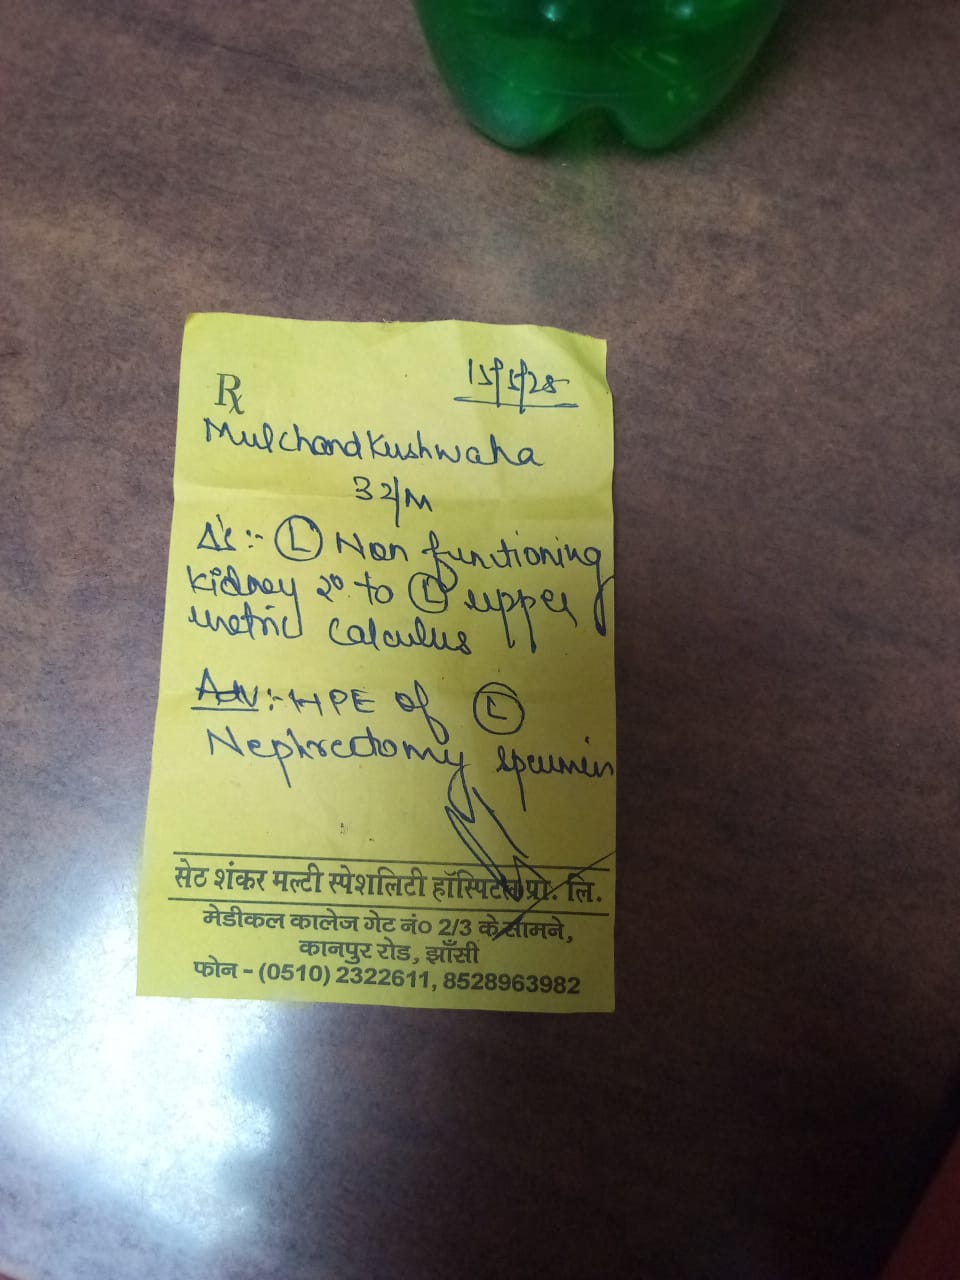 15/5/25
Rx
Mulchand Kushwaha
32/M
Δ's :- Ⓛ Non functioning
Kidney 2° to Ⓛ upper
uretric calculus
Adv :- HPE of Ⓛ
Nephrectomy specimen
सेठ शंकर मल्टी स्पेशलिटी हॉस्पिटल प्रा. लि.
मेडीकल कालेज गेट नं० 2/3 के सामने,
कानपुर रोड, झाँसी
फोन - (0510) 2322611, 8528963982